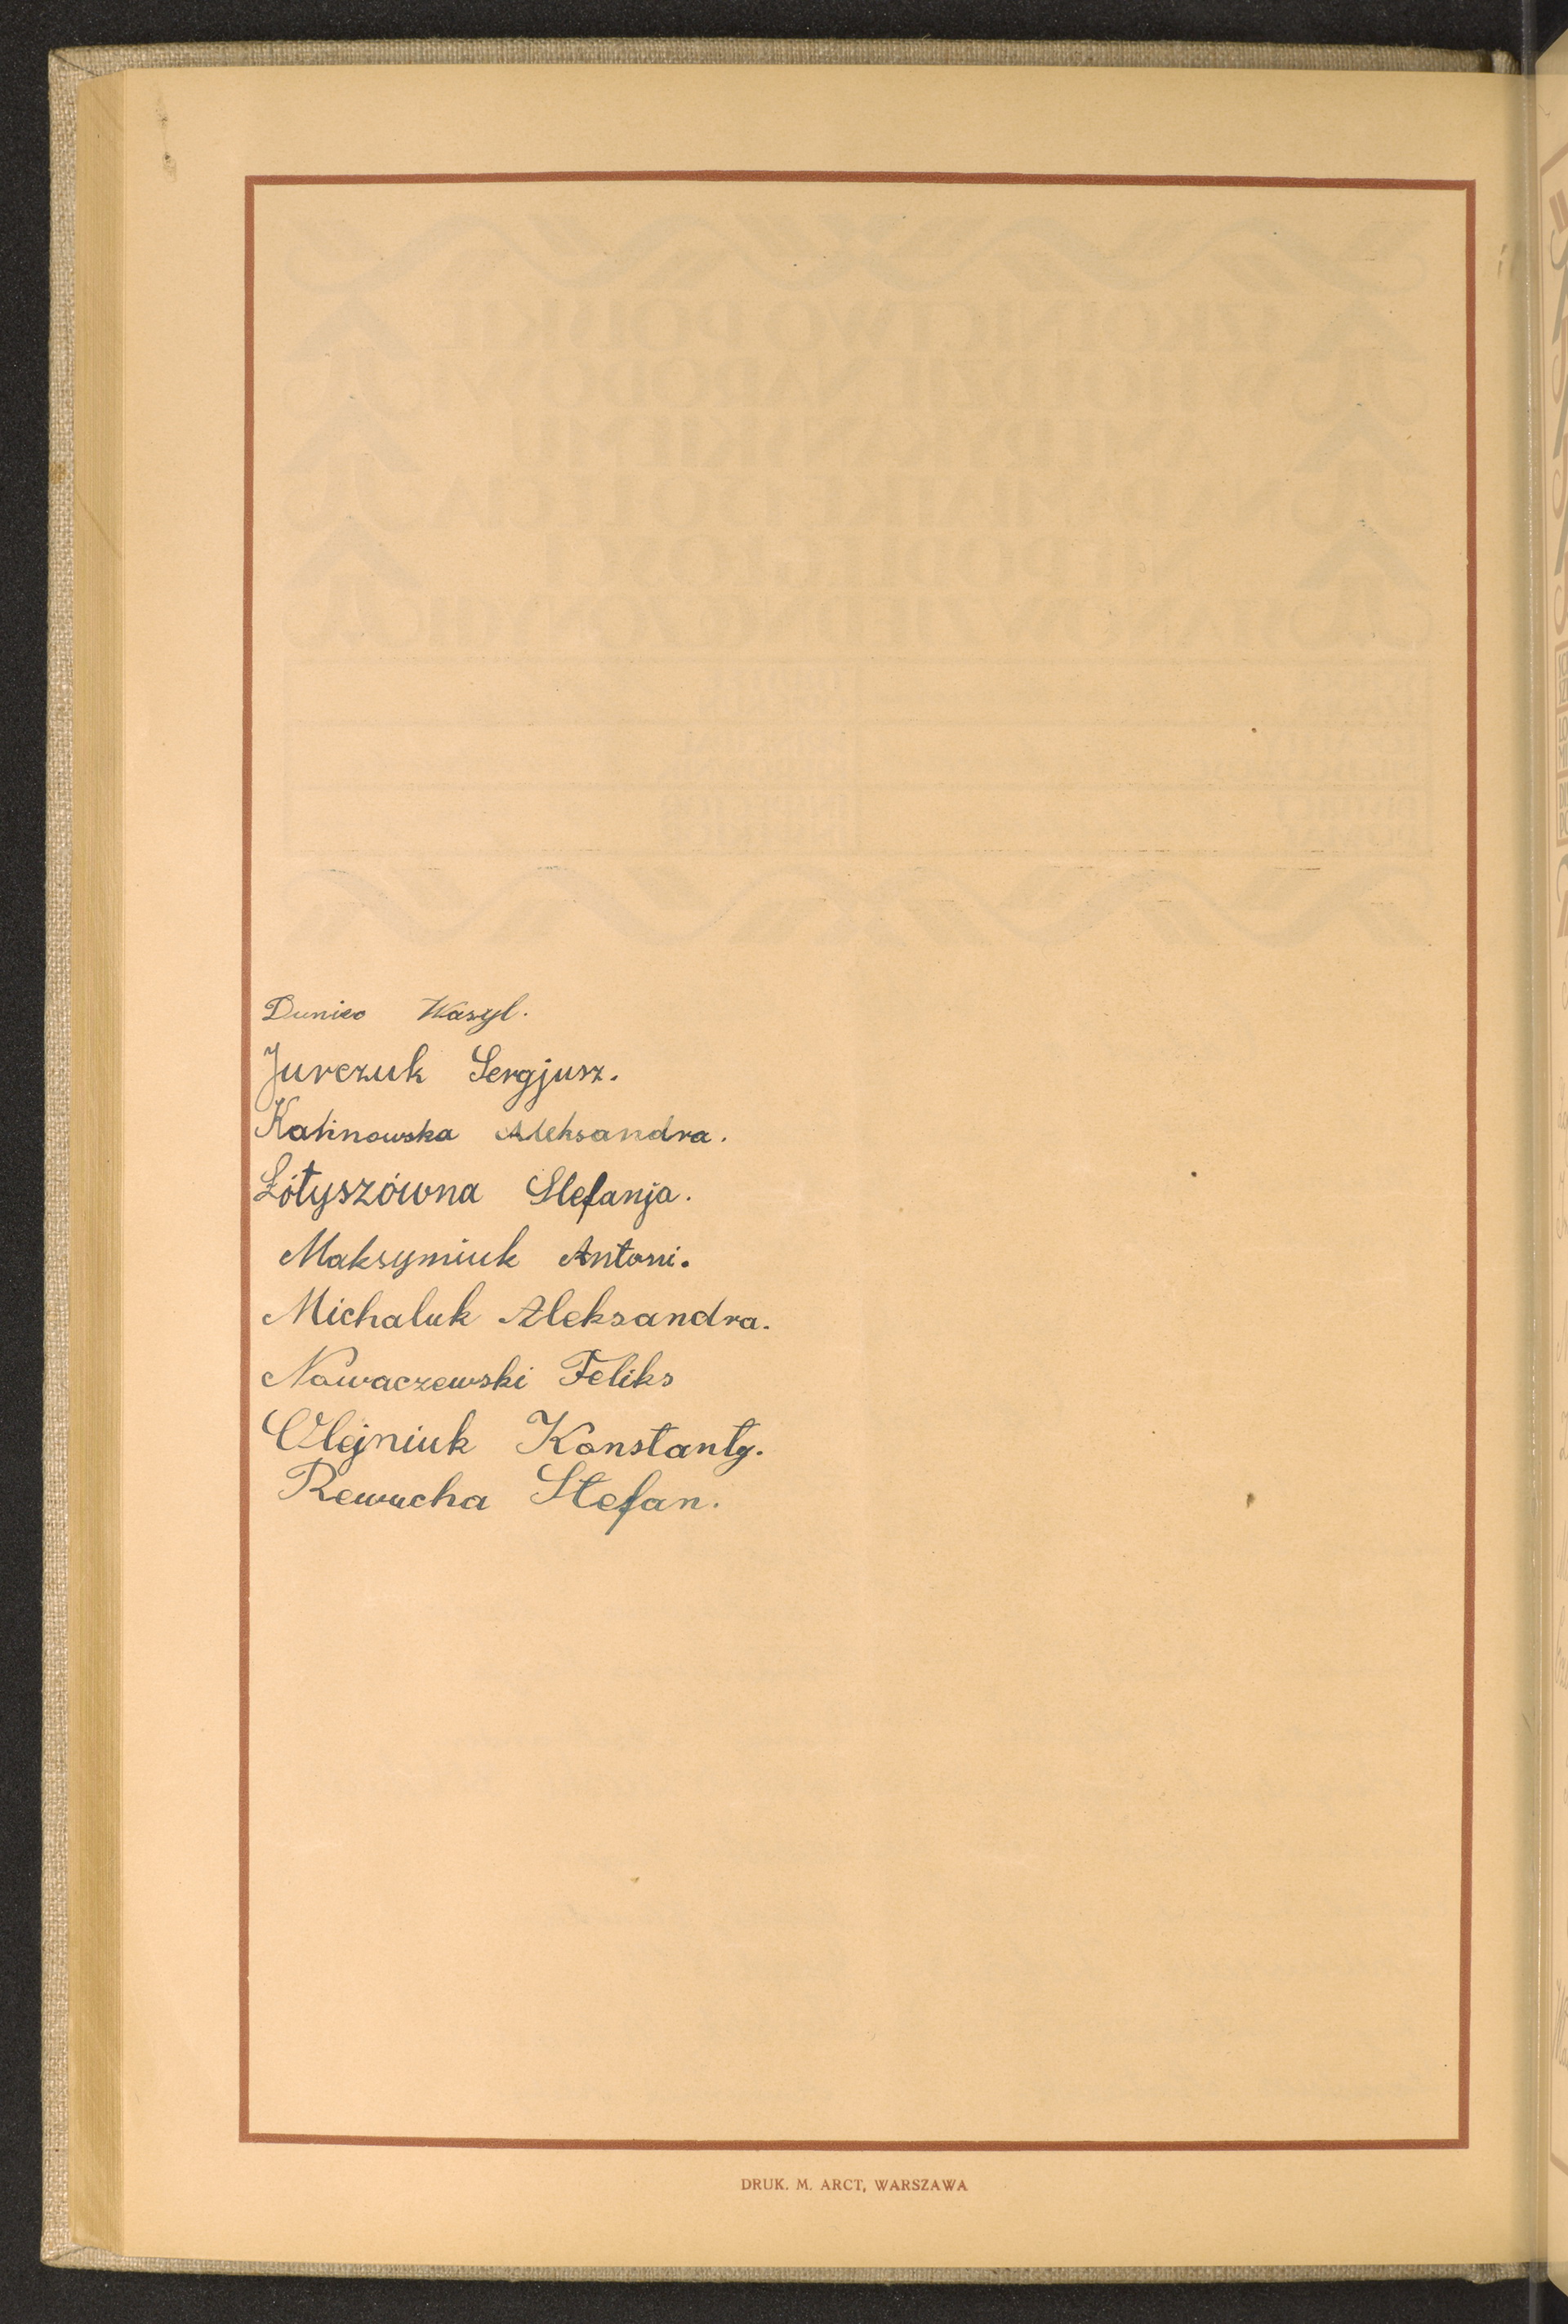 Duniec Wasyl.
Jurczuk Sergjusz.
Kalinowska Aleksandra.
Łótyszówna Stefanja.
Maksymiuk Antoni.
Michaluk Aleksandra.
Nowaczewski Feliks
Olejniuk Konstanty.
Rewucha Stefan.
DRUK. M. ARCT, WARSZAWA